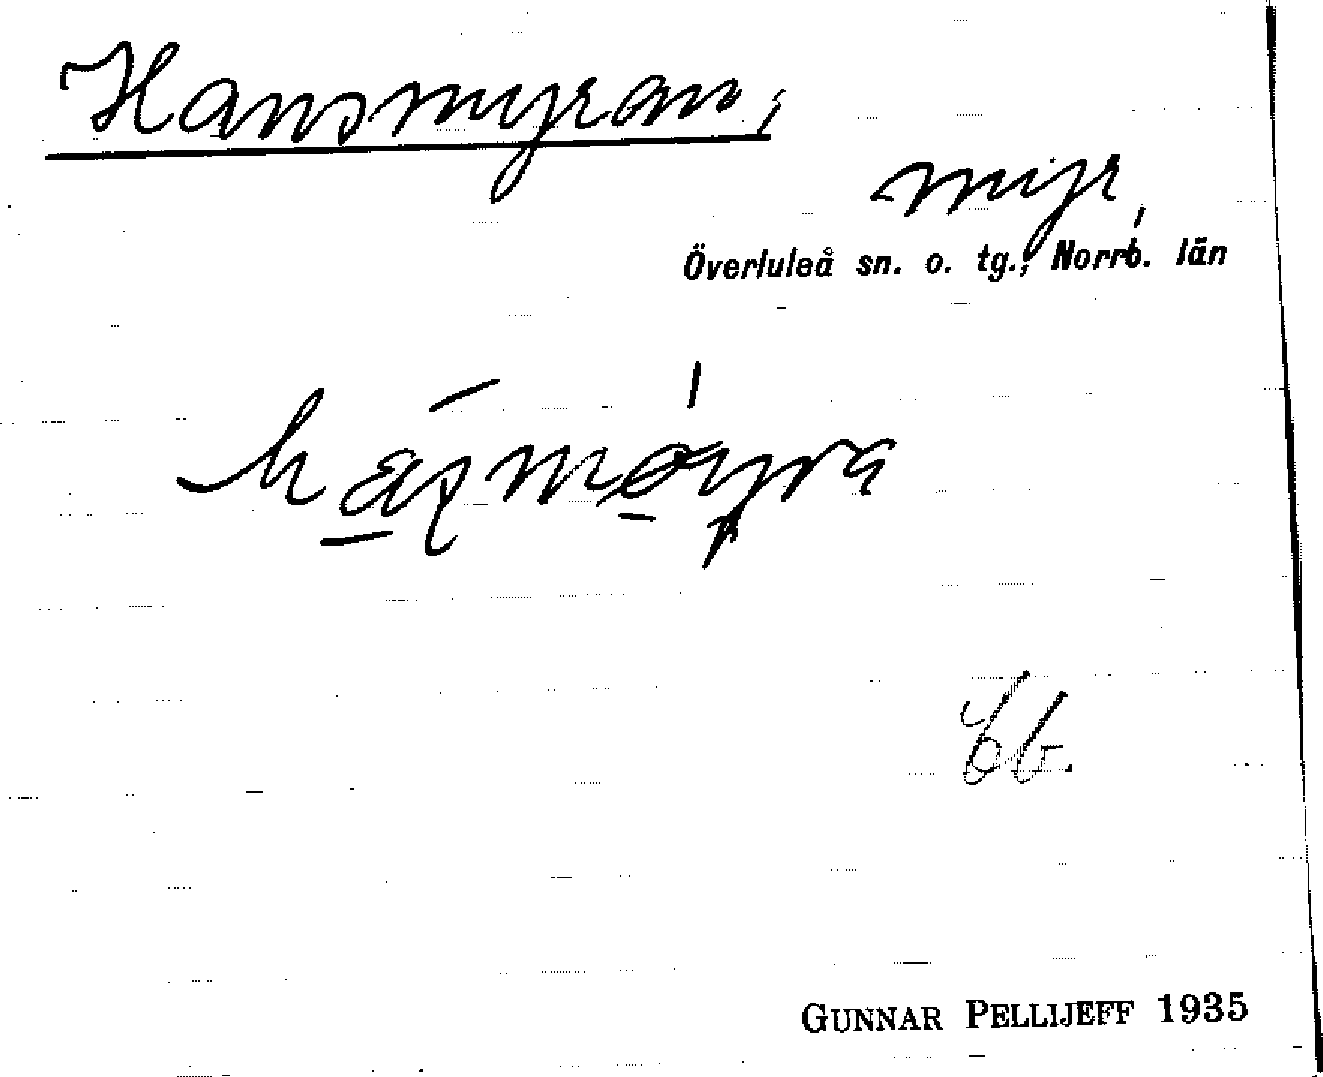 Hansmyran,
myr,
Överluleå sn. o. tg., Norrb. län
GUNNAR PELLIJEFF 1935